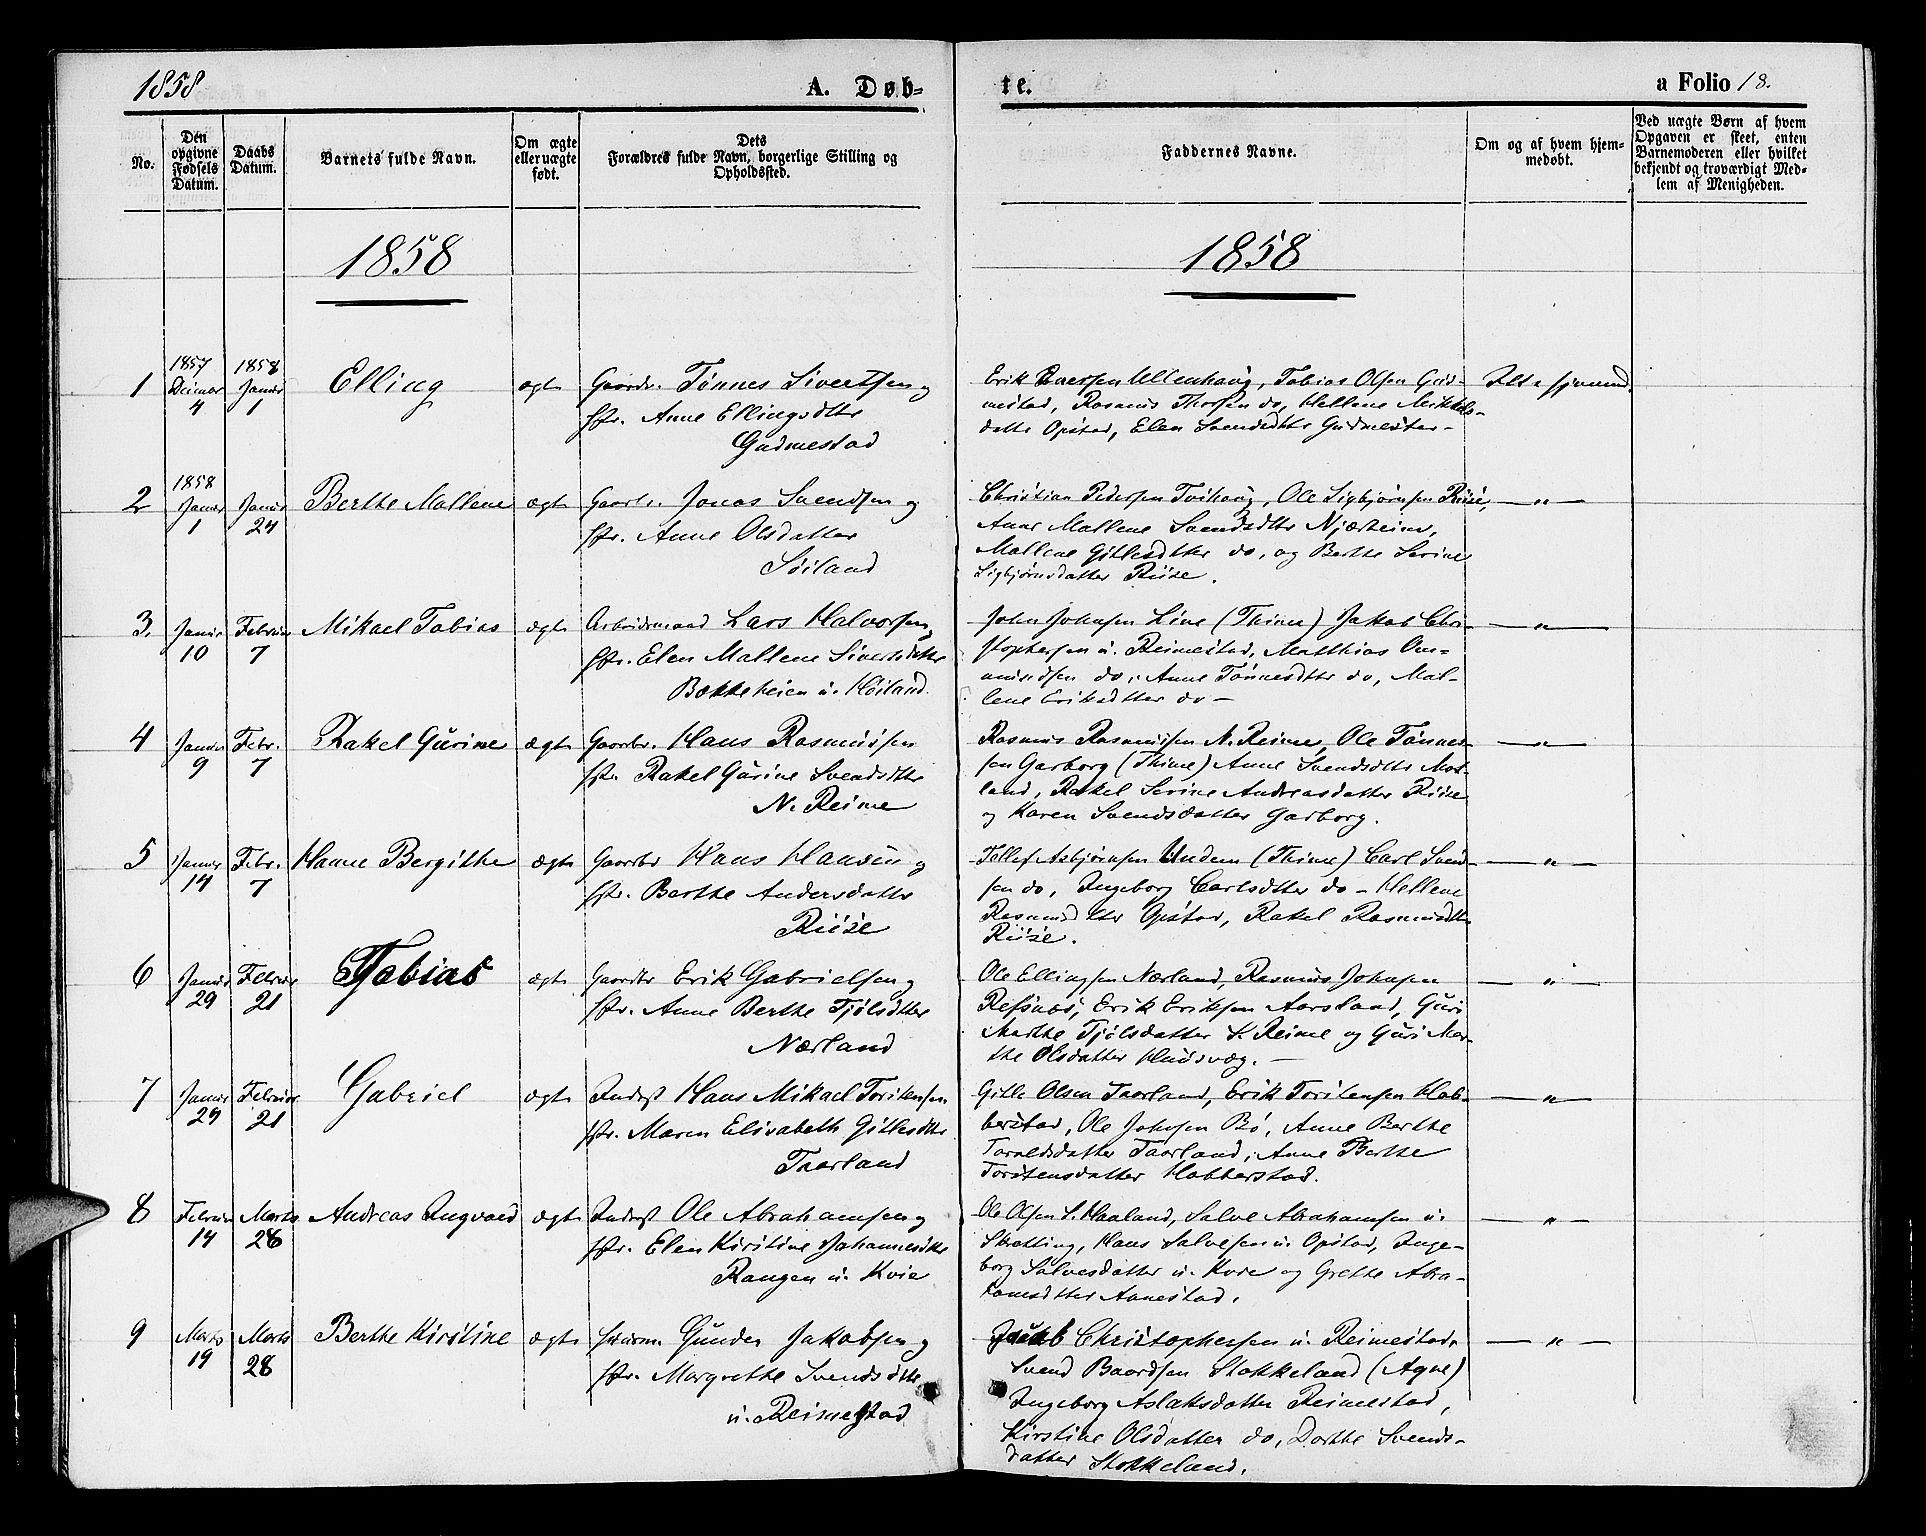 1858
A. Døb-
te.
a Folio 18.
No.
Den
opgivne
Fødsels
Datum.
Daabs
Datum.
Barnets fulde Navn.
Om ægte
eller uægte
født.
Dets
Forældres fulde Navn, borgerlige Stilling og
Opholdssted.
Faddernes Navne.
Om og af hvem hjem-
medøbt.
Ved uægte Børn af hvem
Opgaven er skeet, enten
Barnemoderen eller hvilket
bekjendt og troværdigt Med-
lem af Menigheden.
1858
1858
1857 1858
1 Januar Elling ægte Gaardbr. Tønnes Sivertsen og
4 1
Htr. Anne Ellingsdtter
Gudmestad
Erik Ullenhaug, Tobias Olsen Gud-
mestad, Rasmus Thorsen do, Hellene Mikkels-
datter Opstad, Elen Svendsdtter Gudmestad-
1858
2 Januar Januar Berthe Mallene ægte Gaardbr. Jonas Svendsen og
1 24
Htr. Anne Olsdatter
Søiland
Christian Pedersen Tvihaug, Ole Sigbjørnsen Riise, — " —
Anne Mallene Svendsdtter Njærheim,
Mallene Gitlesdtter do, og Berthe Serine
Sigbjørnsdatter Riise.
3. Januar Februar Mikael Tobias ægte Arbeidsmand Lars Halvorsen og
10 7
Htr. Elen Mallene Sivertsdatter
Bækkeheien u. Høiland.
John Johnsen Line (Thime) Jakob Chri- — " —
stophersen u. Reimestad, Matthias Om-
mundsen do, Anne Tønnesdtter do, Mal-
lene Eriksdtter do –
4 Januar Febr. Rakel Gurine ægte Gaardbr. Hans Rasmussen
9 7
Htr. Rakel Gurine Svendsdtter
N. Reime
Rasmus Rasmussen N. Reime, Ole Tønnes- — " —
sen Garborg (Thime) Anne Svendsdtter Mot-
land, Rakel Serine Andreasdatter Riise
og Karen Svendsdatter Garborg.
5 Januar Febr. Hanne Bergitthe ægte Gaardbr Hans Hansen og
14 7
Htr. Berthe Andersdatter
Riise
Tollef Asbjørnsen Undem (Thime) Carl Svend- — " —
sen do, Ingeborg Carlsdtter do – Hellene
Rasmusdtter Opstad, Rakel Rasmusdtter
Riise.
6 Januar Februar Tobias ægte Gaardbr Erik Gabrielsen og
29 21
Htr. Anne Berthe Tjølsdtter
Nærland
Ole Ellingsen Nærland, Rasmus Johnsen — " —
Refsnæs, Erik Eriksen Aarsland, Guri
Marthe Tjølsdatter S. Reime og Guri Mar-
the Olsdatter Husvæg. —
7 Januar Februar Gabriel ægte Inderst Hans Mikael Torstensen
29 21
Htr. Maren Elisabeth Gitlesdtter
Taarland
Gitle Olsen Taarland, Erik Torstensen Hob- — " —
berstad, Ole Johnsen Bø, Anne Berthe
Taraldsdatter Taarland, Anne Berthe
Torstensdatter Hobberstad.
8 Februar Marts Andreas Ingvald ægte Inderst Ole Abrahamsen og
14 28
Htr. Elen Kirstine Johannesdtr
Rangen u. Kvie
Ole Olsen S. Haaland, Salve Abrahamsen u. — " —
Skretting, Hans Salvesen u. Opstad, Inge-
borg Salvesdatter u. Kvie og Grethe Abra-
hamsdtter Aanestad.
9 Marts Marts Berthe Kirstine ægte Gunder Jakobsen og
19 28
Htr. Margrethe Svendsdtter
u. Reimestad
Jakob Christophersen u. Reimestad, — " —
Svend Baardsen Stokkeland (Agne)
Ingeborg Aslaksdatter Reimestad,
Kirstine Olsdatter do, Dorthe Svends-
datter Stokkeland.